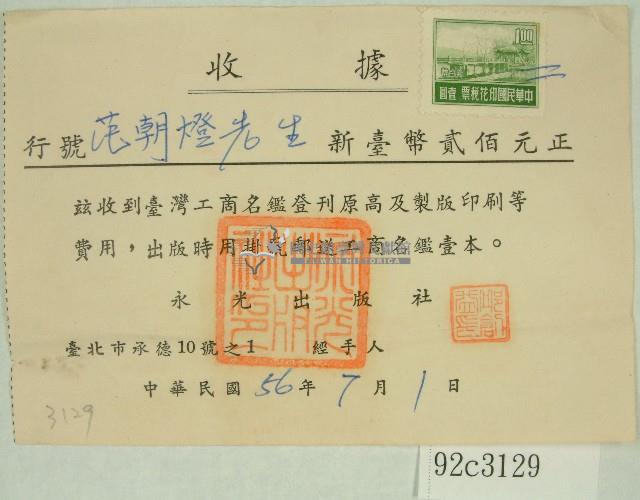 收據
1.00
中華民國印花稅票 壹圓
行號范朝燈先生 新臺幣貳佰元正
玆收到臺灣工商名鑑登刊原高及製版印刷等
費用，出版時用掛號郵送工商名鑑壹本。
TAIWAN HISTORICA
永光出版社
臺北市承德10號之1 經手人
中華民國56年7月1日
3129
92c3129